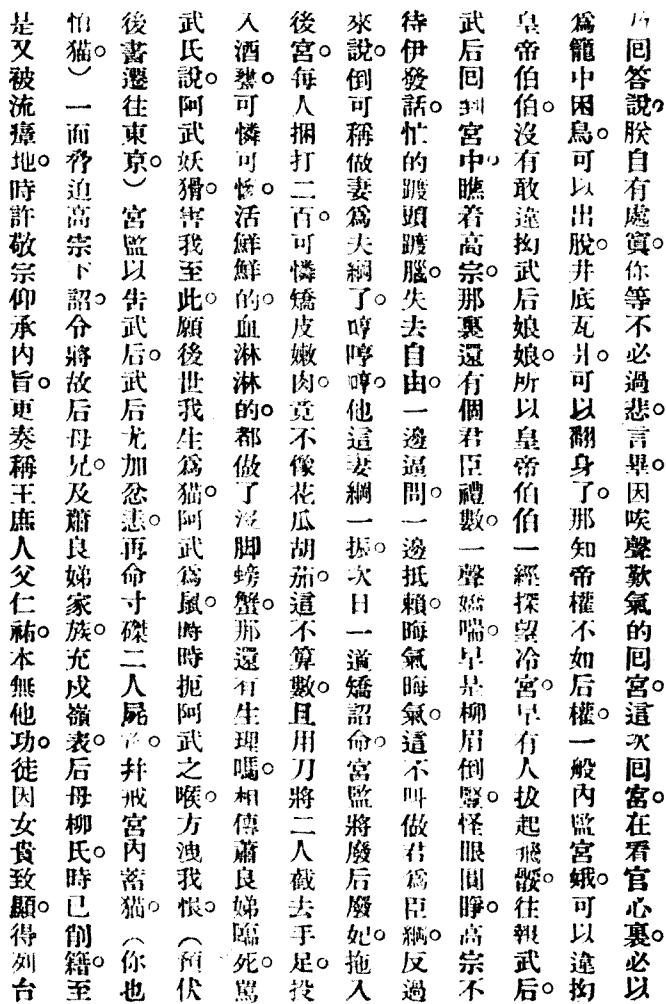 回答說朕自有處寘你等不必過悲言畢因唉聲歎氣的回宮這次回宮在看官心裏必以
爲籠中困鳥可以出脫井底瓦爿可以翻身了那知帝權不如后權一般內監宮娥可以違拗
皇帝伯伯沒有敢違拗武后娘娘所以皇帝伯伯一經探望冷宮早有人拔起飛骰往報武后
武后回到宮中瞧着高宗那裏還有個君臣禮數一聲嬌喘早是柳眉倒豎怪眼圓睜高宗不
待伊發話忙的躨頭躨腦失去自由一邊逼問一邊抵賴晦氣晦氣這不叫做君爲臣綱反過
來說倒可稱做妻爲夫綱了哼哼哼他這妻綱一振次日一道矯詔命宮監將廢后廢妃拖入
後宮每人捆打二百可憐矯皮嫩肉竟不像花瓜胡茄這不算數且用刀將二人截去手足投
入酒甕可憐可慘活鮮鮮的血淋淋的都做了沒脚螃蟹那還有生理嗎相傳蕭良娣臨死罵
武氏說阿武妖猾害我至此願後世我生爲猫阿武爲鼠時時扼阿武之喉方洩我恨（預伏
後書遷往東京）宮監以告武后武后尤加忿恚再命寸磔二人屍首并戒宮內蓄猫（你也
怕猫）一面脅迫高宗下詔令將故后母兄及蕭良娣家族充戍嶺表后母柳氏時已削籍至
是又被流瘴地時許敬宗仰承內旨更奏稱王庶人父仁祐本無他功徒因女貴致顯得列台